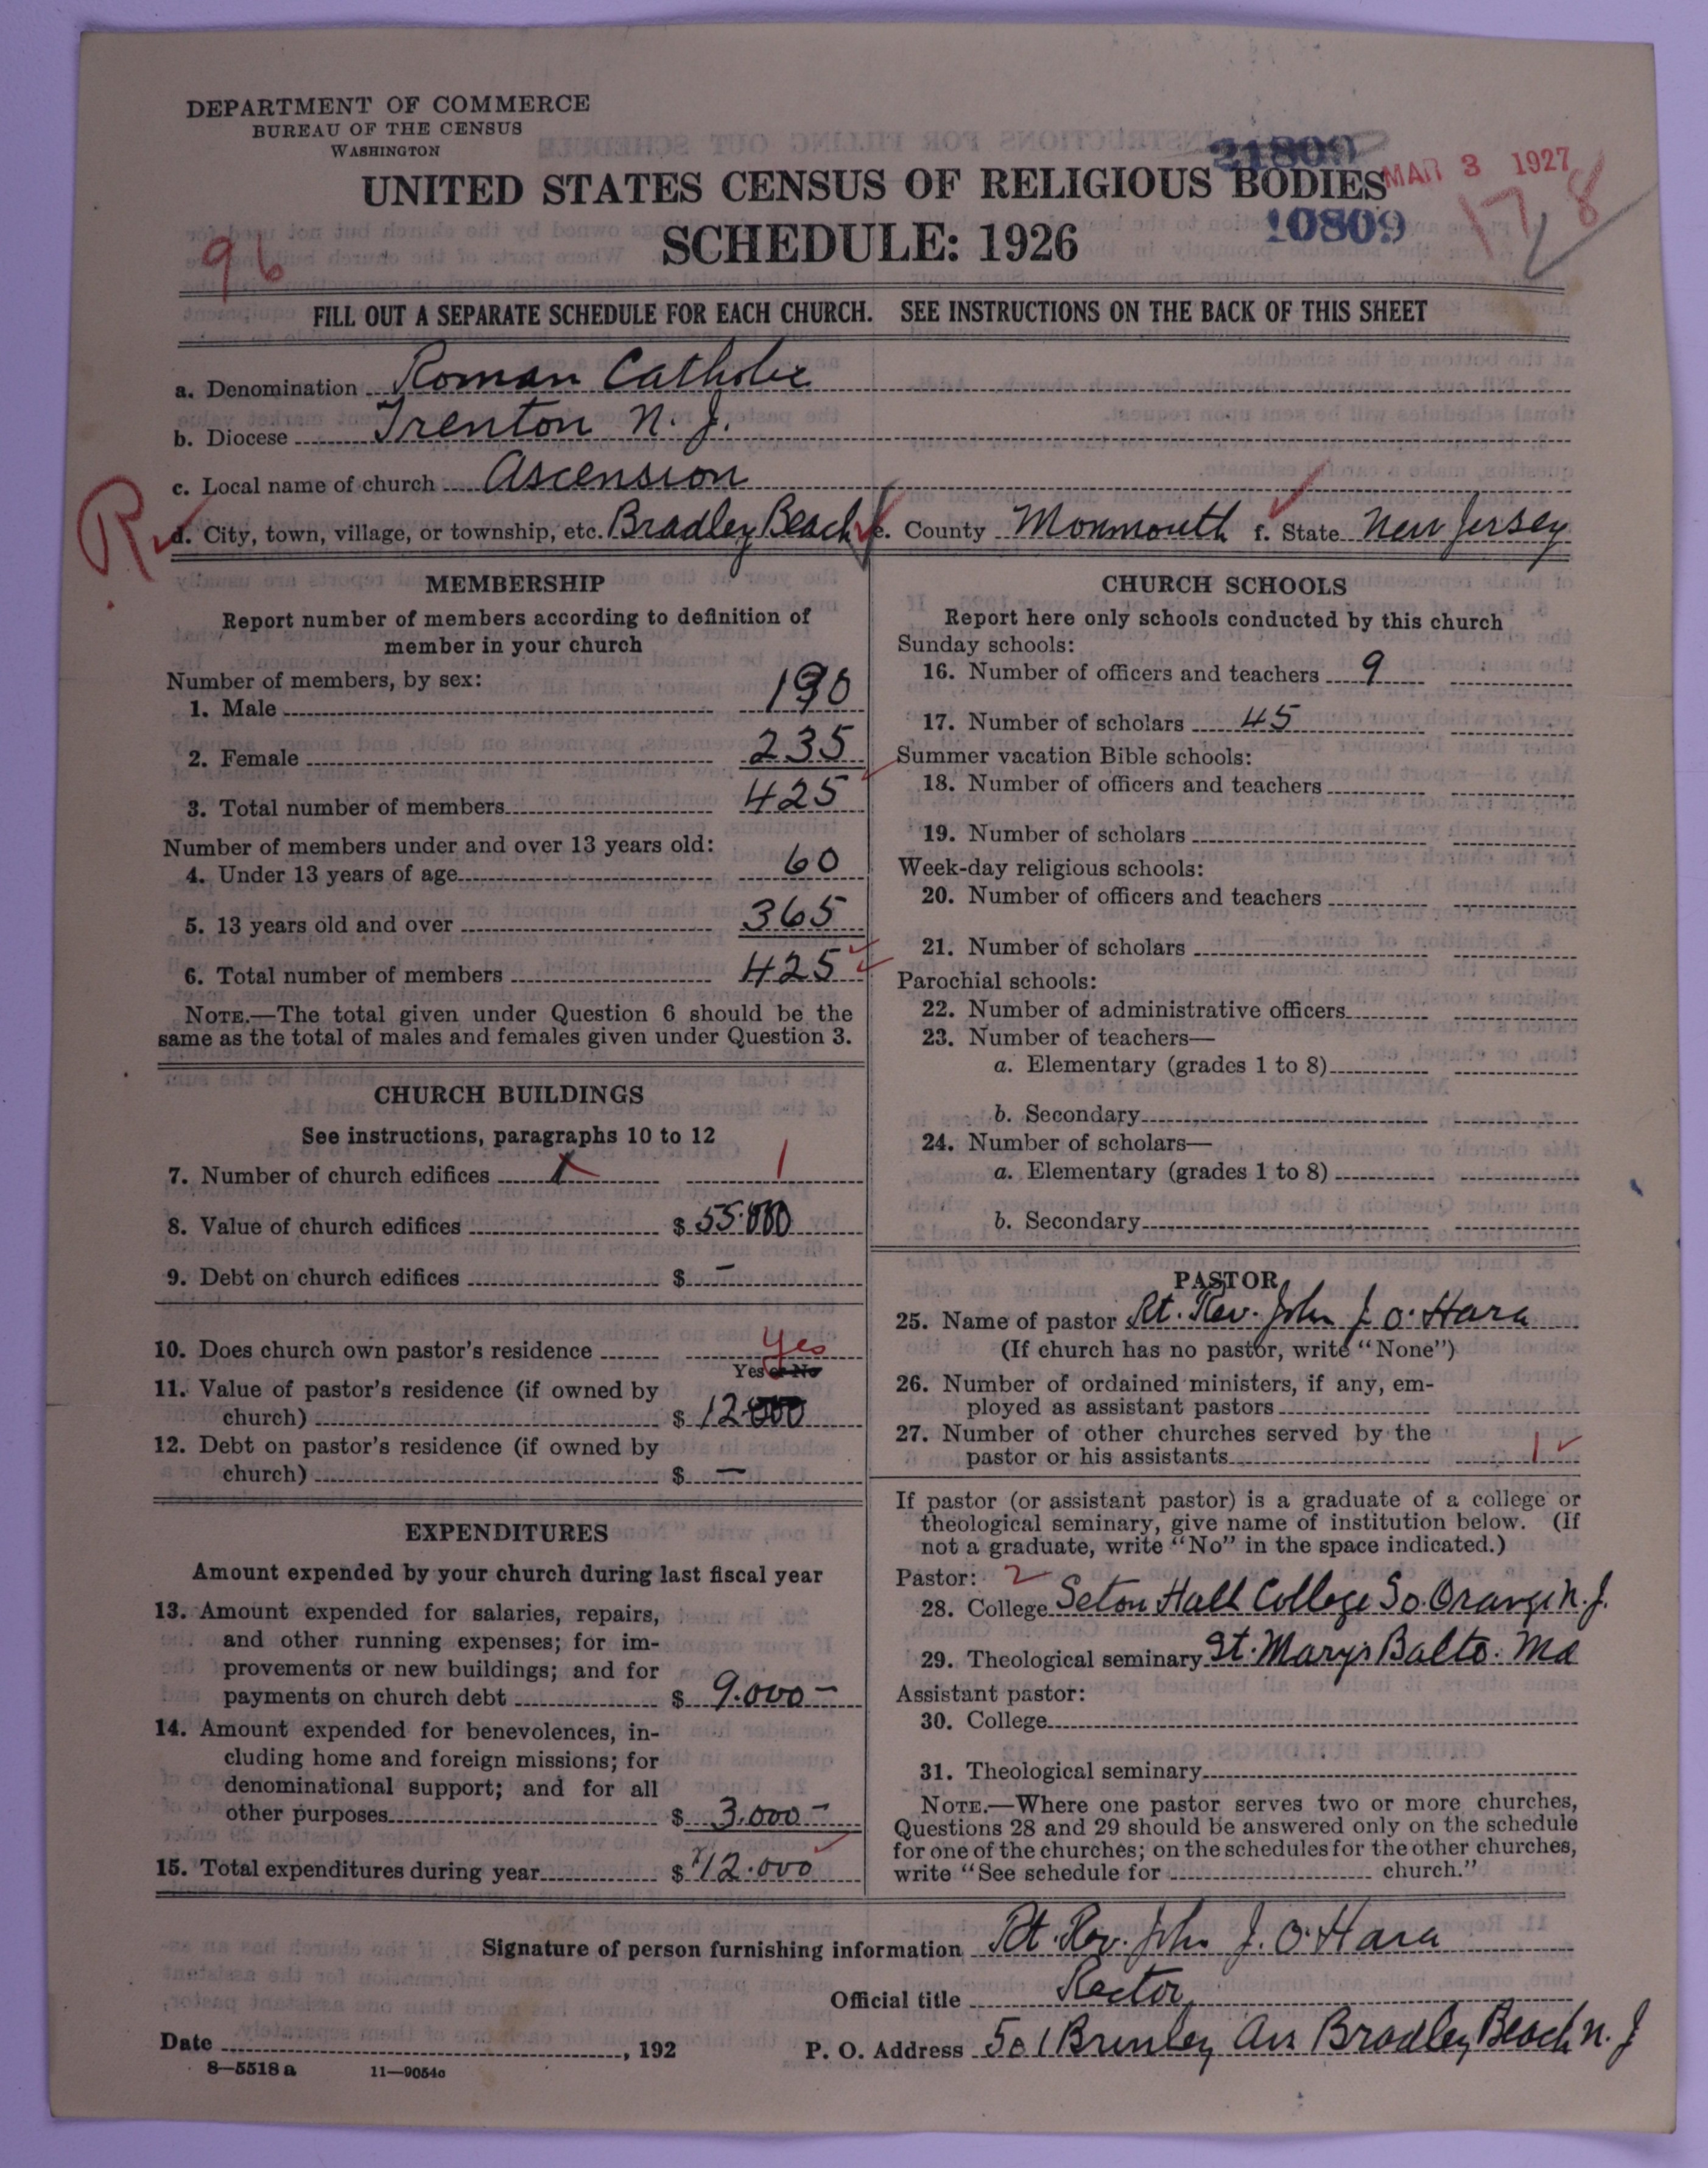 DEPARTMENT OF COMMERCE
BUREAU OF THE CENSUS
WASHINGTON
21809
MAR 3 1927
UNITED STATES CENSUS OF RELIGIOUS BODIES
178
10809
SCHEDULE: 1926
96
FILL OUT A SEPARATE SCHEDULE FOR EACH CHURCH. SEE INSTRUCTIONS ON THE BACK OF THIS SHEET
a. Denomination Roman Catholic
b. Diocese Trenton N. J.
c. Local name of church Ascension
R
d. City, town, village, or township, etc. Bradley Beach e. County Monmouth f. State New Jersey
MEMBERSHIP
Report number of members according to definition of
member in your church
Number of members, by sex:
1. Male 190
2. Female 235
3. Total number of members 425
Number of members under and over 13 years old:
4. Under 13 years of age 60
5. 13 years old and over 365
6. Total number of members 425
NOTE.—The total given under Question 6 should be the
same as the total of males and females given under Question 3.
CHURCH BUILDINGS
See instructions, paragraphs 10 to 12
7. Number of church edifices 1 1
8. Value of church edifices $ 55.000
9. Debt on church edifices $ –
10. Does church own pastor's residence yes
Yes or No
11. Value of pastor's residence (if owned by
church) $ 12000
12. Debt on pastor's residence (if owned by
church) $ –
EXPENDITURES
Amount expended by your church during last fiscal year
13. Amount expended for salaries, repairs,
and other running expenses; for im-
provements or new buildings; and for
payments on church debt $ 9.000–
14. Amount expended for benevolences, in-
cluding home and foreign missions; for
denominational support; and for all
other purposes $ 3.000–
15. Total expenditures during year $ 12.000
CHURCH SCHOOLS
Report here only schools conducted by this church
Sunday schools:
16. Number of officers and teachers 9
17. Number of scholars 45
Summer vacation Bible schools:
18. Number of officers and teachers
19. Number of scholars
Week-day religious schools:
20. Number of officers and teachers
21. Number of scholars
Parochial schools:
22. Number of administrative officers
23. Number of teachers—
a. Elementary (grades 1 to 8)
b. Secondary
24. Number of scholars—
a. Elementary (grades 1 to 8)
b. Secondary
PASTOR
25. Name of pastor Rt. Rev. John J O'Hara
(If church has no pastor, write "None")
26. Number of ordained ministers, if any, em-
ployed as assistant pastors
27. Number of other churches served by the
pastor or his assistants 1
If pastor (or assistant pastor) is a graduate of a college or
theological seminary, give name of institution below. (If
not a graduate, write "No" in the space indicated.)
Pastor: 2
28. College Seton Hall College So. Orange N. J.
29. Theological seminary St. Mary's Balto. Md
Assistant pastor:
30. College
31. Theological seminary
NOTE.—Where one pastor serves two or more churches,
Questions 28 and 29 should be answered only on the schedule
for one of the churches; on the schedules for the other churches,
write "See schedule for church."
Signature of person furnishing information Rt. Rev. John J. O'Hara
Official title Rector
Date , 192 P. O. Address 501 Brinley Ave Bradley Beach N. J
8—5518 a 11—9054c